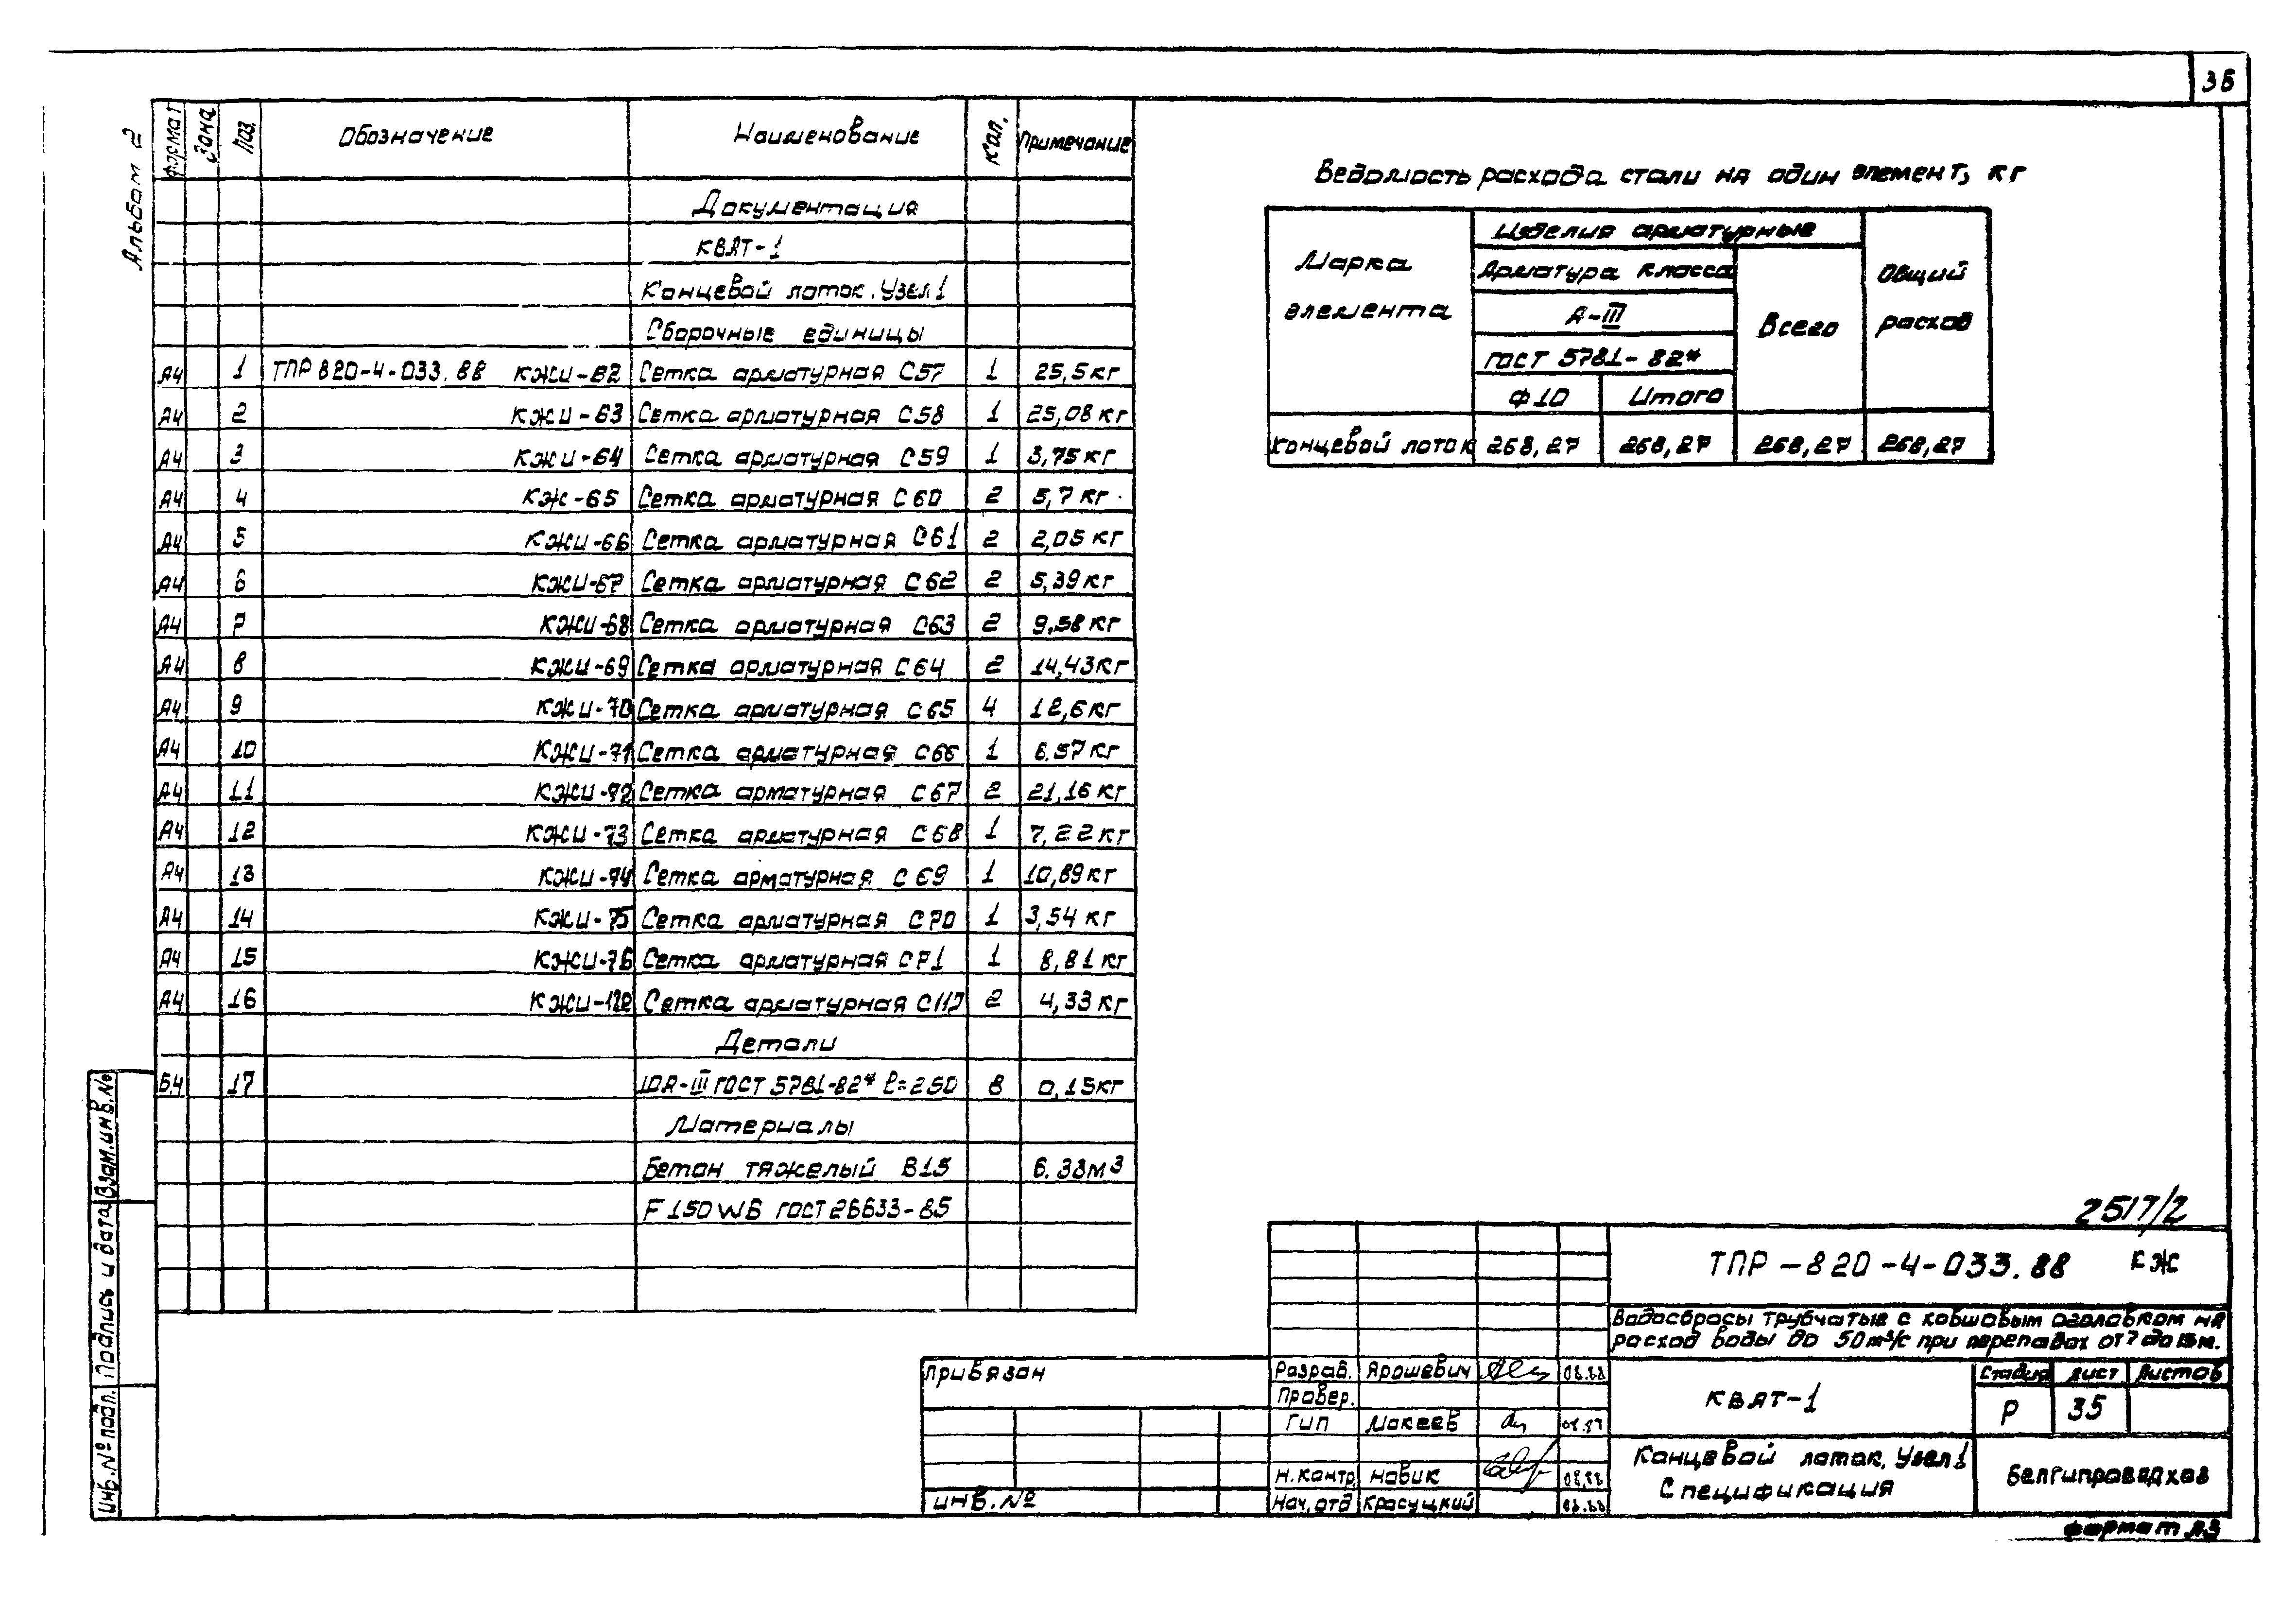 36
Альбом 2
Формат Зона Поз. Обозначение Наименование Кол. Примечание
Документация
КВЯТ-1
Концевой лоток. Узел 1
Сборочные единицы
А4 1 ТПР 820-4-033.88 КЖИ-62 Сетка арматурная С57 1 25,5 кг
А4 2 КЖИ-63 Сетка арматурная С58 1 25,08 кг
А4 3 КЖИ-64 Сетка арматурная С59 1 3,75 кг
А4 4 КЖ-65 Сетка арматурная С60 2 5,7 кг
А4 5 КЖИ-66 Сетка арматурная С61 2 2,05 кг
А4 6 КЖИ-67 Сетка арматурная С62 2 5,39 кг
А4 7 КЖИ-68 Сетка арматурная С63 2 9,58 кг
А4 8 КЖИ-69 Сетка арматурная С64 2 14,43 кг
А4 9 КЖИ-70 Сетка арматурная С65 4 12,6 кг
А4 10 КЖИ-71 Сетка арматурная С66 1 6.57 кг
А4 11 КЖИ-72 Сетка арматурная С67 2 21,16 кг
А4 12 КЖИ-73 Сетка арматурная С68 1 7,22 кг
А4 13 КЖИ-74 Сетка арматурная С69 1 10,89 кг
А4 14 КЖИ-75 Сетка арматурная С70 1 3,54 кг
А4 15 КЖИ-76 Сетка арматурная С71 1 8,81 кг
А4 16 КЖИ-122 Сетка арматурная С117 2 4,33 кг
Детали
Б.4 17 10А-III ГОСТ 5781-82* ℓ=250 8 0,15 кг
Материалы
Бетон тяжелый В15 6.33 м3
F150 W6 ГОСТ 26633-85
Ведомость расхода стали на один элемент, кг
Марка элемента
Изделия арматурные
Арматура класса
А-III
ГОСТ 5781-82*
Ф10 Итого
Всего
Общий расход
Концевой лоток 268,27 268,27 268,27 268,27
Инв.№ подл. Подпись и дата Взам.инв.№
2517/2
ТПР-820-4-033.88 КЖ
Водосбросы трубчатые с ковшовым оголовком на
расход воды до 50 м³/с при перепадах от 7 до 15 м.
Привязан
Инв.№
Разраб. Ярошевич 08.88
Провер.
ГИП Макеев
Н.контр. Новик 08.88
Нач.отд Красуцкий 08.88
КВЯТ-1
Стадия Лист Листов
Р 35
Концевой лоток. Узел 1
Спецификация
Белгипроводхоз
Формат А3